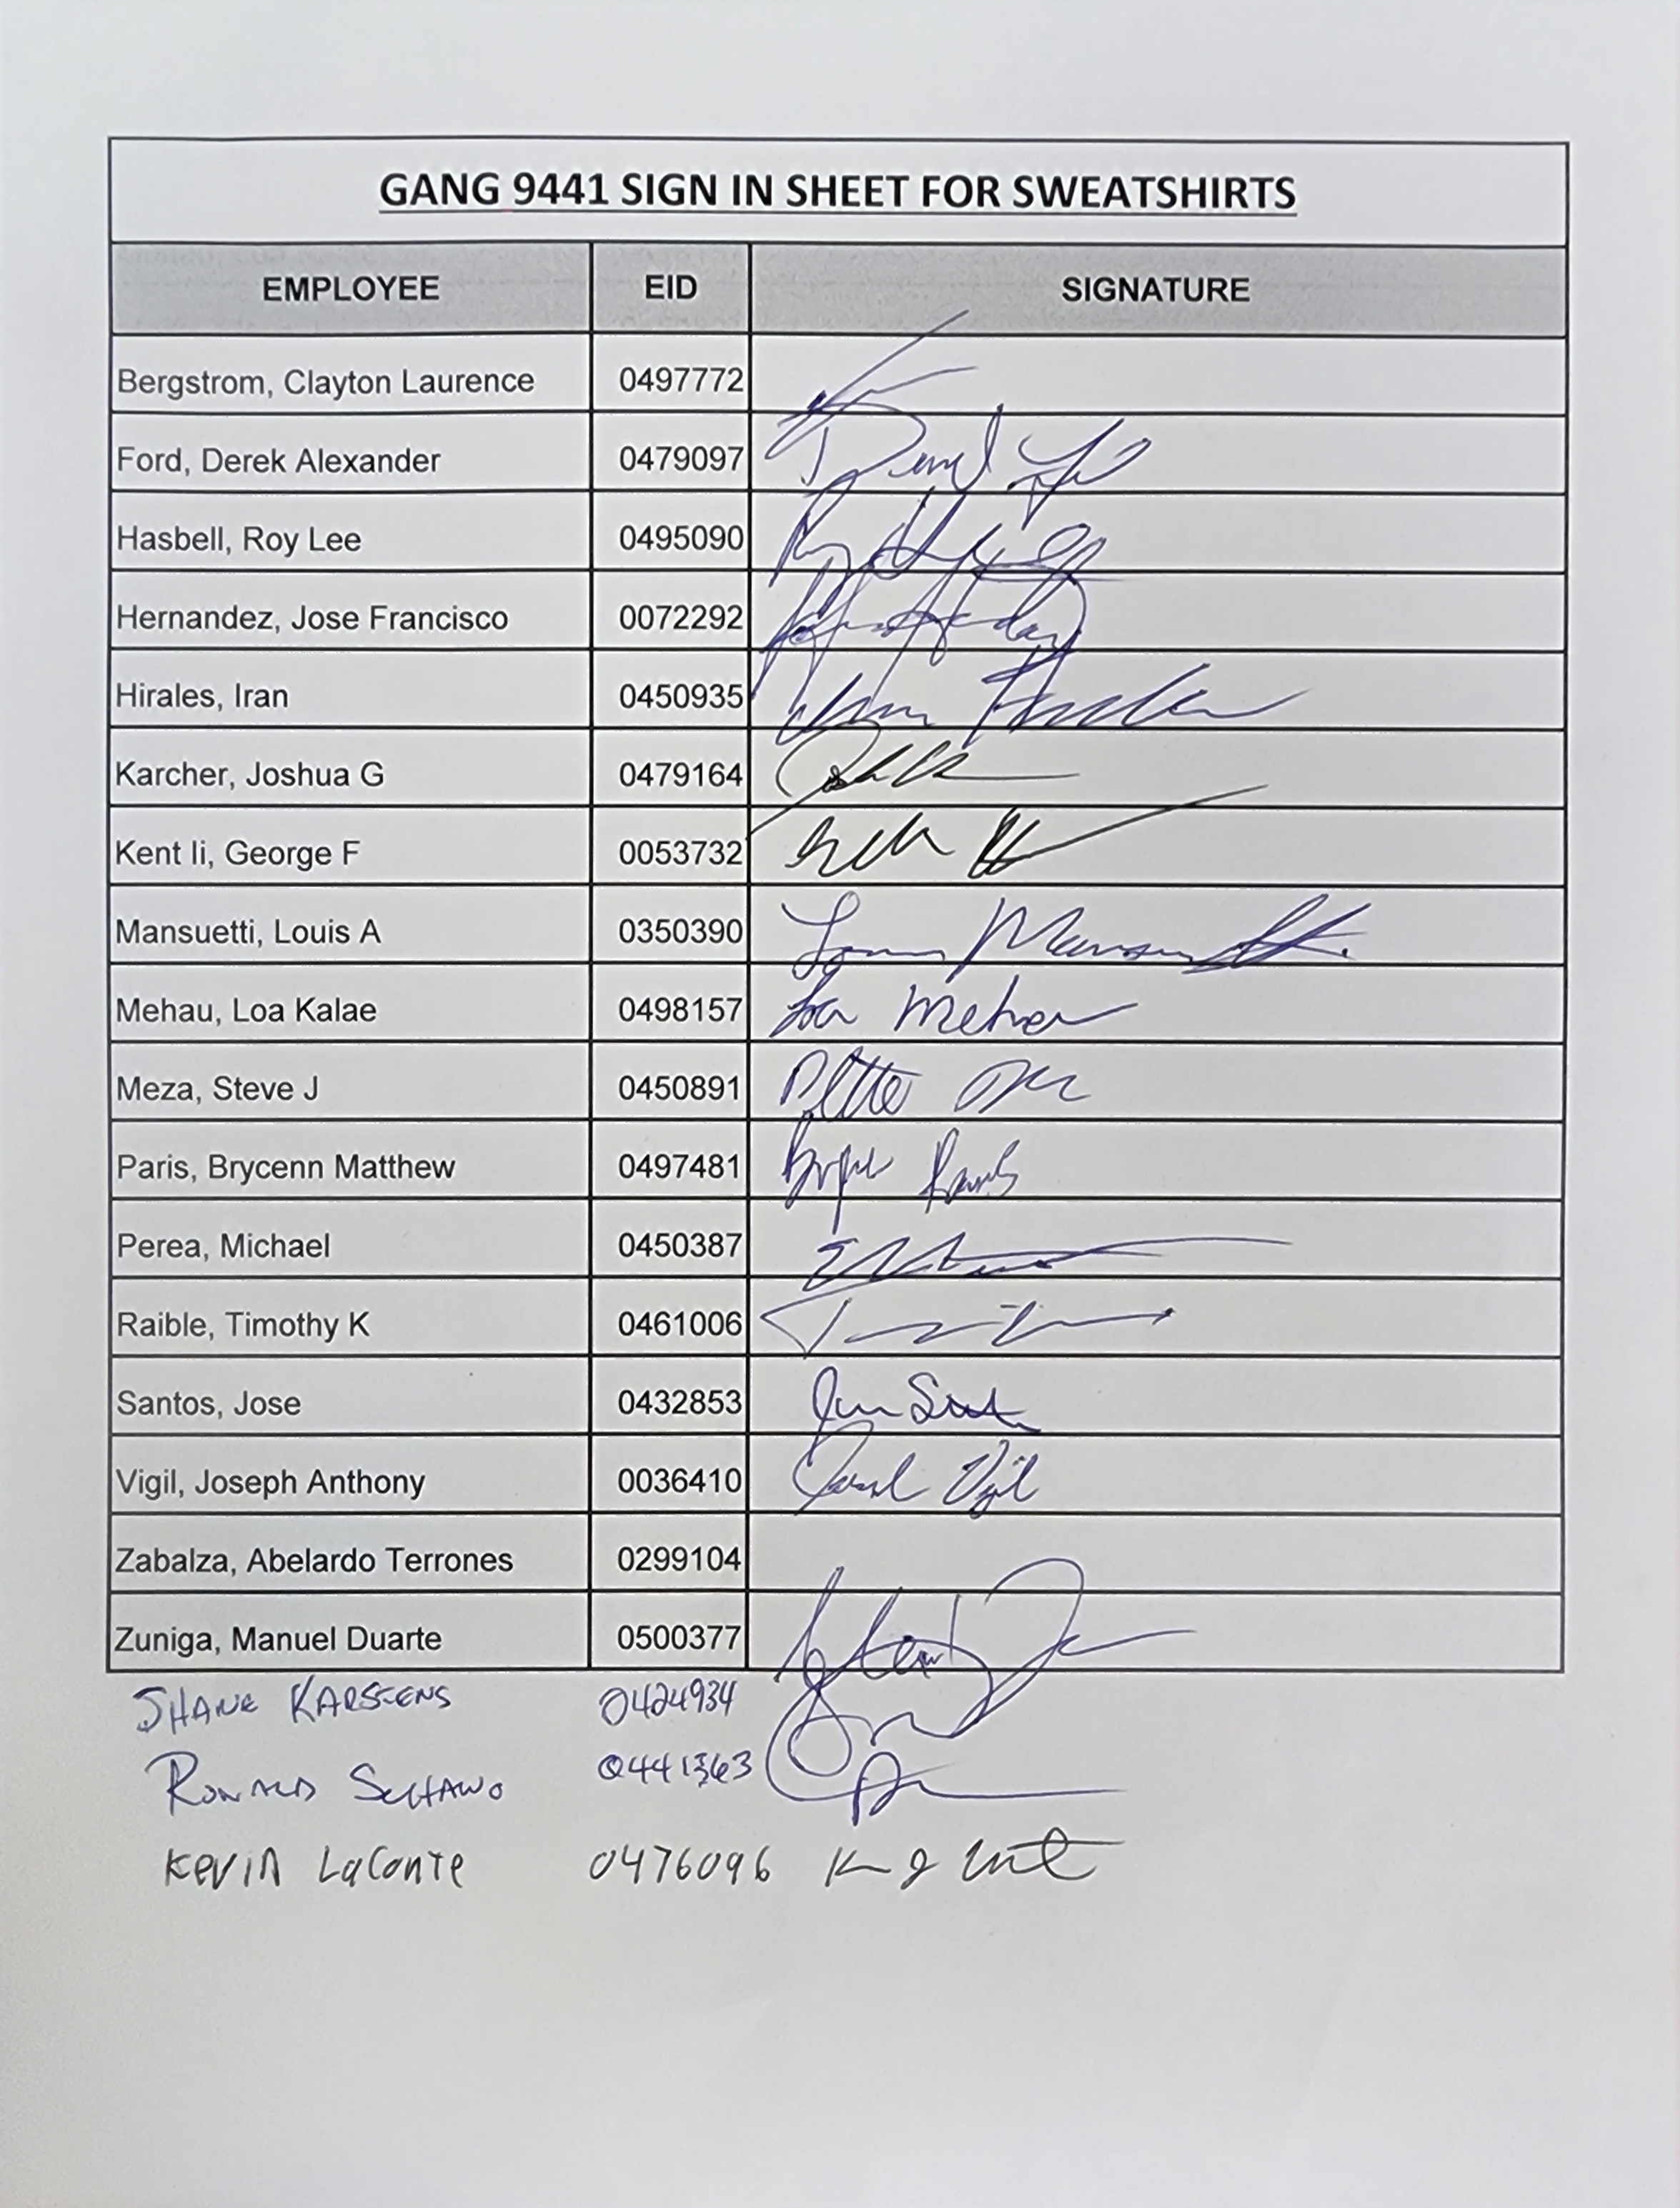 GANG 9441 SIGN IN SHEET FOR SWEATSHIRTS
EMPLOYEE EID SIGNATURE
Bergstrom, Clayton Laurence 0497772
Ford, Derek Alexander 0479097
Hasbell, Roy Lee 0495090
Hernandez, Jose Francisco 0072292
Hirales, Iran 0450935
Karcher, Joshua G 0479164
Kent Ii, George F 0053732
Mansuetti, Louis A 0350390
Mehau, Loa Kalae 0498157 Loa Mehau
Meza, Steve J 0450891
Paris, Brycenn Matthew 0497481
Perea, Michael 0450387
Raible, Timothy K 0461006
Santos, Jose 0432853
Vigil, Joseph Anthony 0036410 Joseph Vigil
Zabalza, Abelardo Terrones 0299104
Zuniga, Manuel Duarte 0500377
SHANE KARSTENS 0424934
RONALD SCHAWO 0441363
KEVIN LaConte 0476096